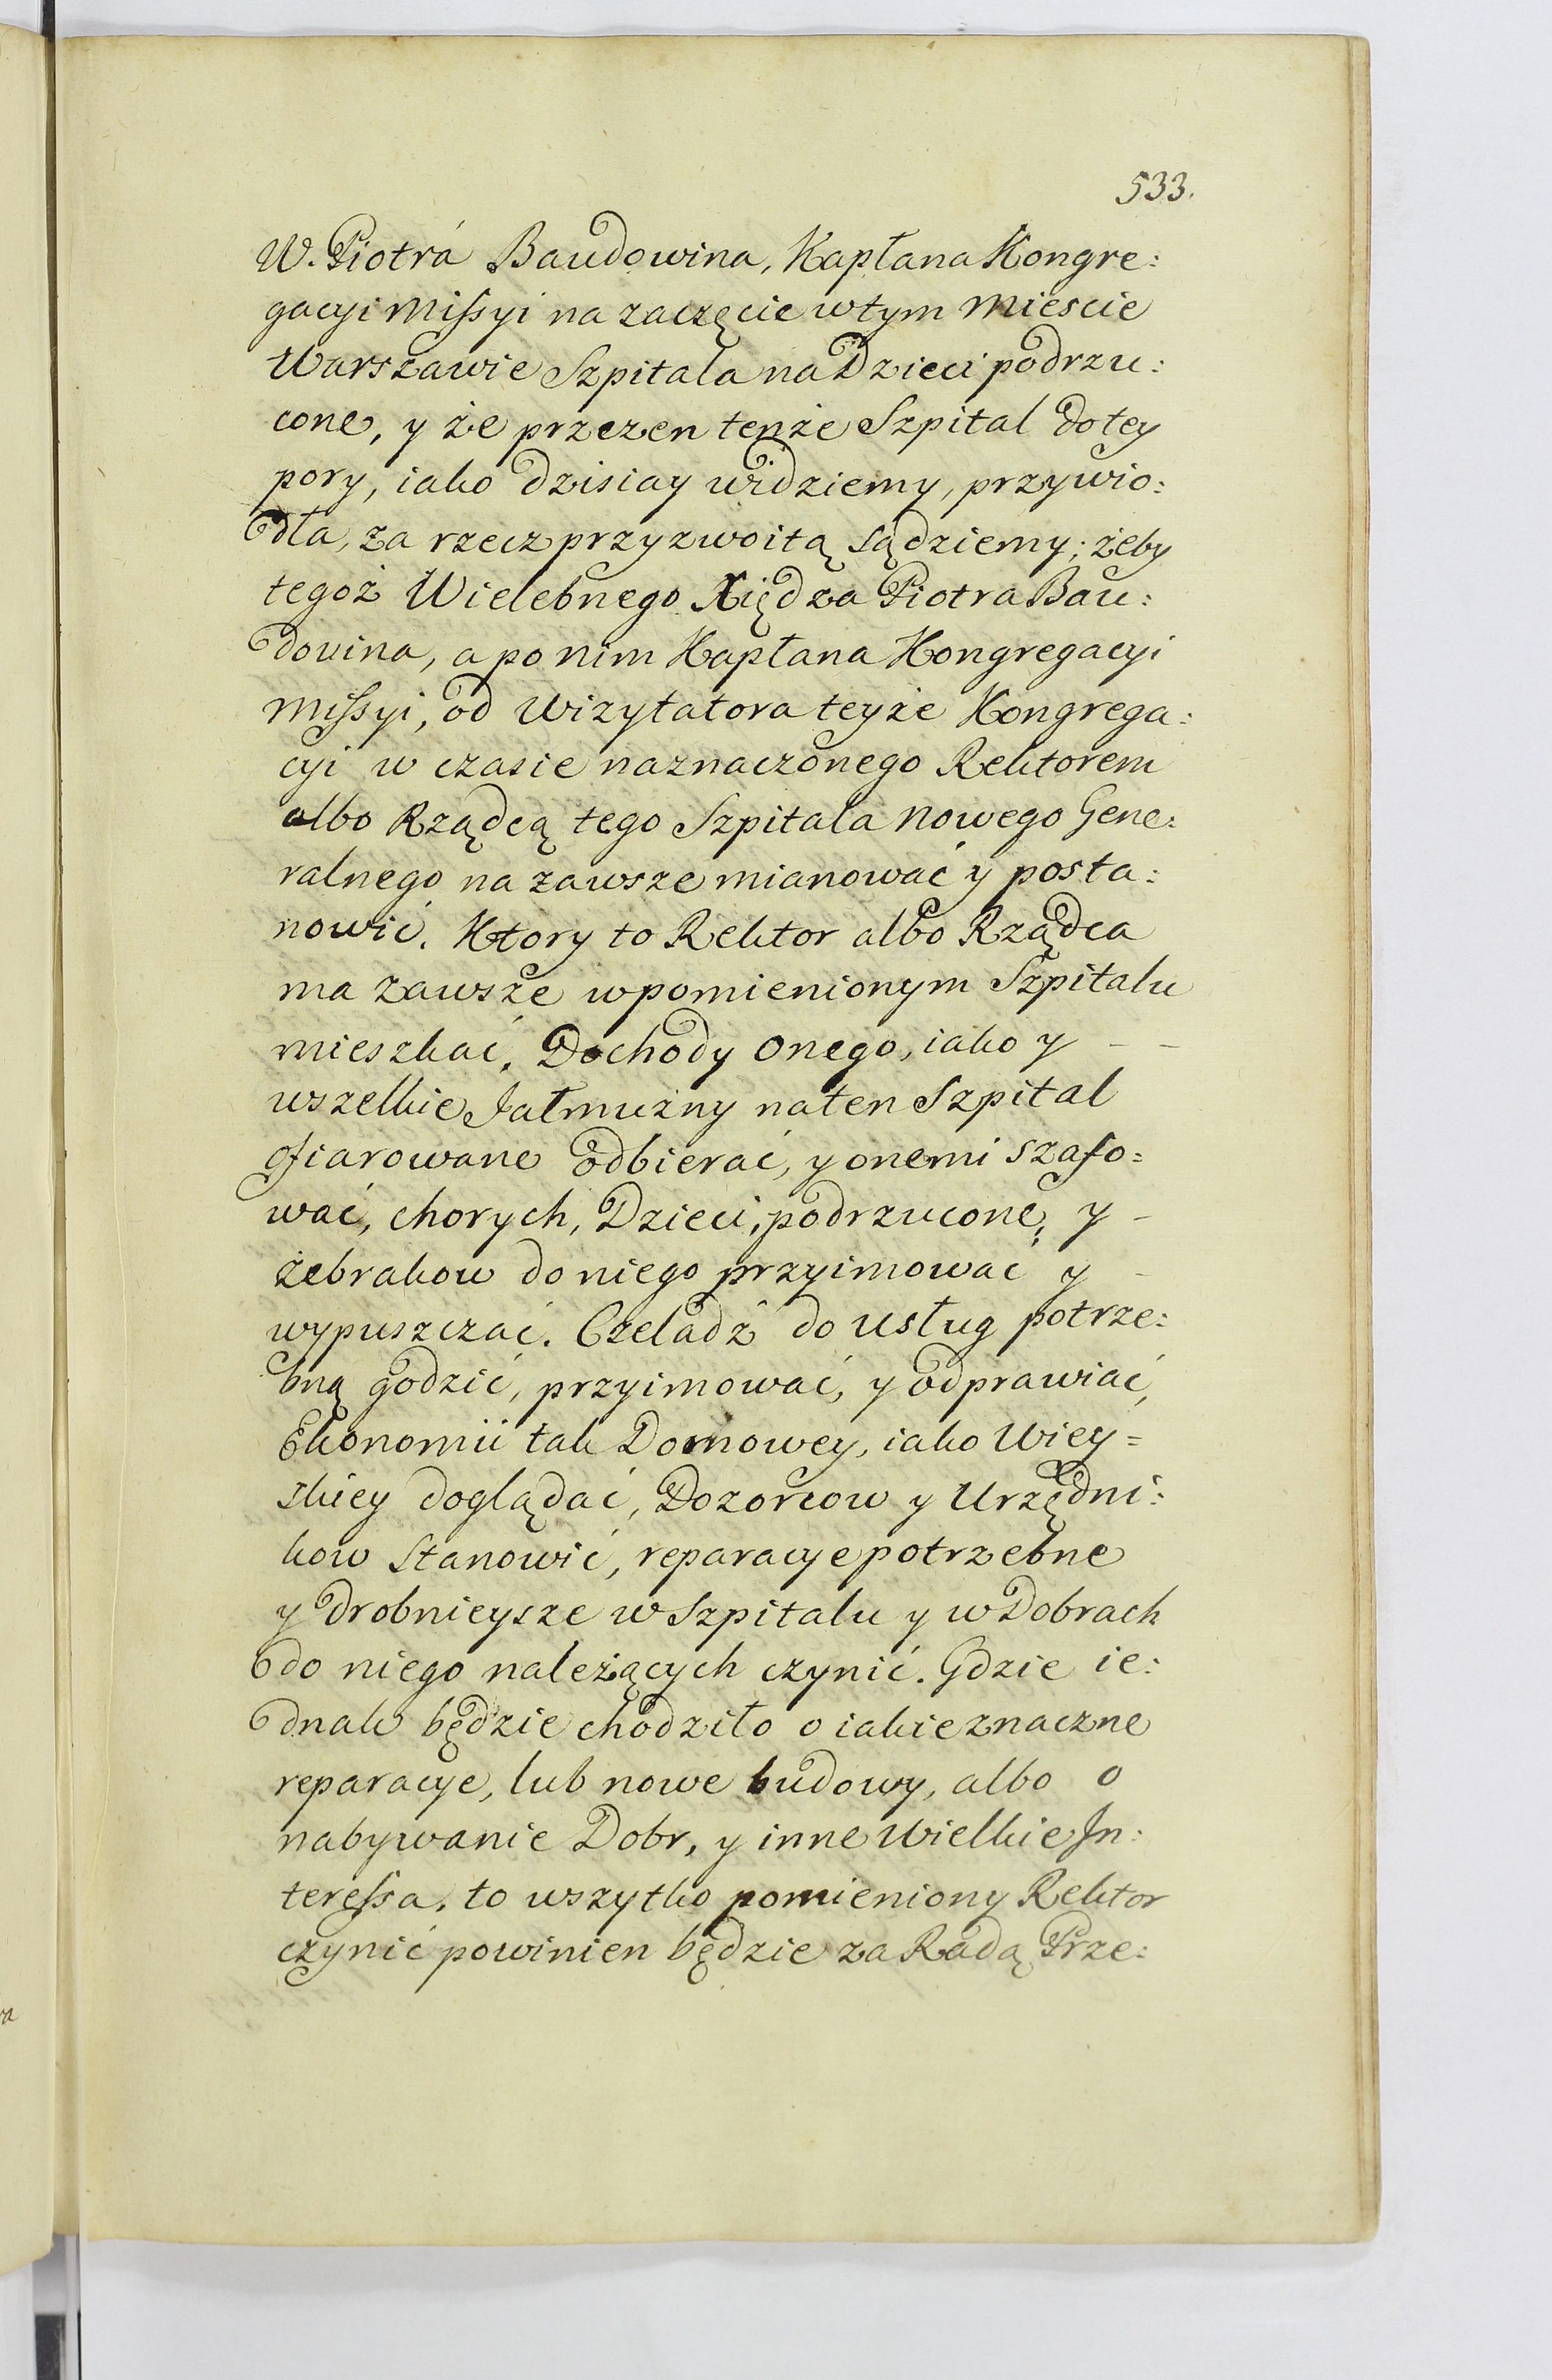 533.
W. Piotrá Baudowina, Kapłana Kongre:
gacyi Missyi na zaczęcie w tym Miescie
Warszawie Szpitala na Dzieci podrzu:
cone, y że przezen tenże Szpital do tey
pory, iako dzisiay widziemy, przywio:
dła, za rzecz przyzwoitą sądziemy; żeby
tegoż Wielebnego Xiędza Piotra Bau:
dovina, a po nim Kapłana Kongregacyi
Missyi, od Wizytatora teyże Kongrega:
cyi w czasie naznaczonego Rektorem
albo Rządcą tego Szpitala Nowego Gene:
ralnego na zawsze mianować y posta:
nowić. Ktory to Rektor albo Rządca
ma zawsze w pomienionym Szpitalu
mieszkać, Dochody onego, iako y - -
wszelkie Jałmużny na ten Szpital
ofiarowane odbierać, y onemi szafo=
wać, chorych, Dzieci, podrzucone, y -
żebrakow do niego przyimować y -
wypuszczać. Czeladź do usług potrze:
bną godzić, przyimować, y odprawiać,
Ekonomii tak Domowey, iako Wiey=
skiey doglądać, Dozorcow y Urzędni:
kow stanowić, reparacye potrzebne
y drobnieysze w Szpitalu y w Dobrach
do niego należących czynić. Gdzie ie:
dnak będzie chodziło o iakie znaczne
reparacye, lub nowe budowy, albo o
nabywanie Dobr, y inne Wielkie In:
teressa, to wszytko pomieniony Rektor
czynić powinien będzie za Radą Prze: